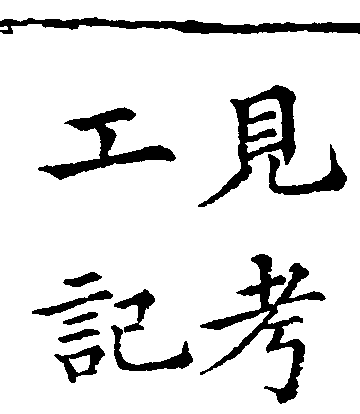 見考
工記